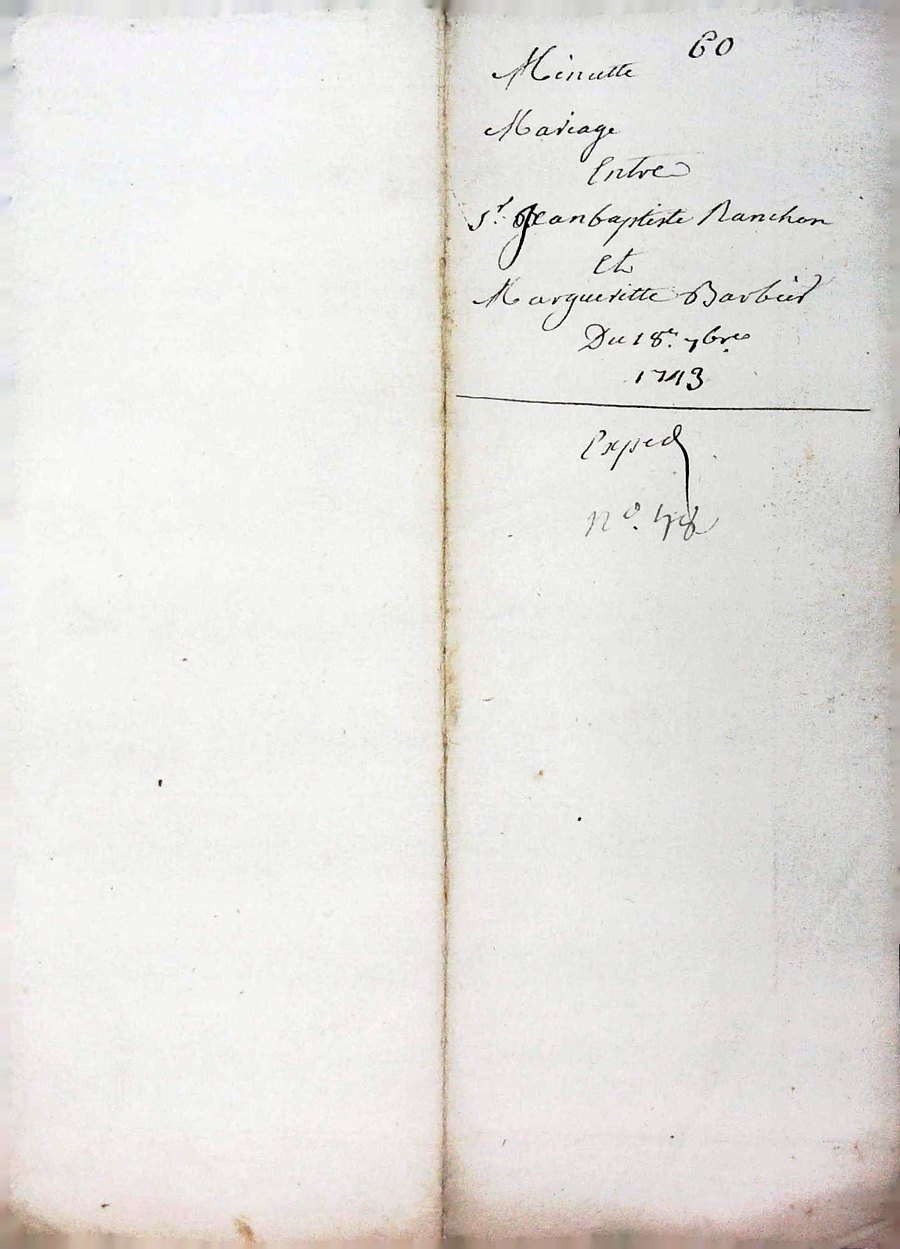 60
Minutte
Mariage
Entre
Sr. Jeanbaptiste Ranchon
Et
Margueritte Barbier
Du 18e. 7bre
1743
Exped
No. 48